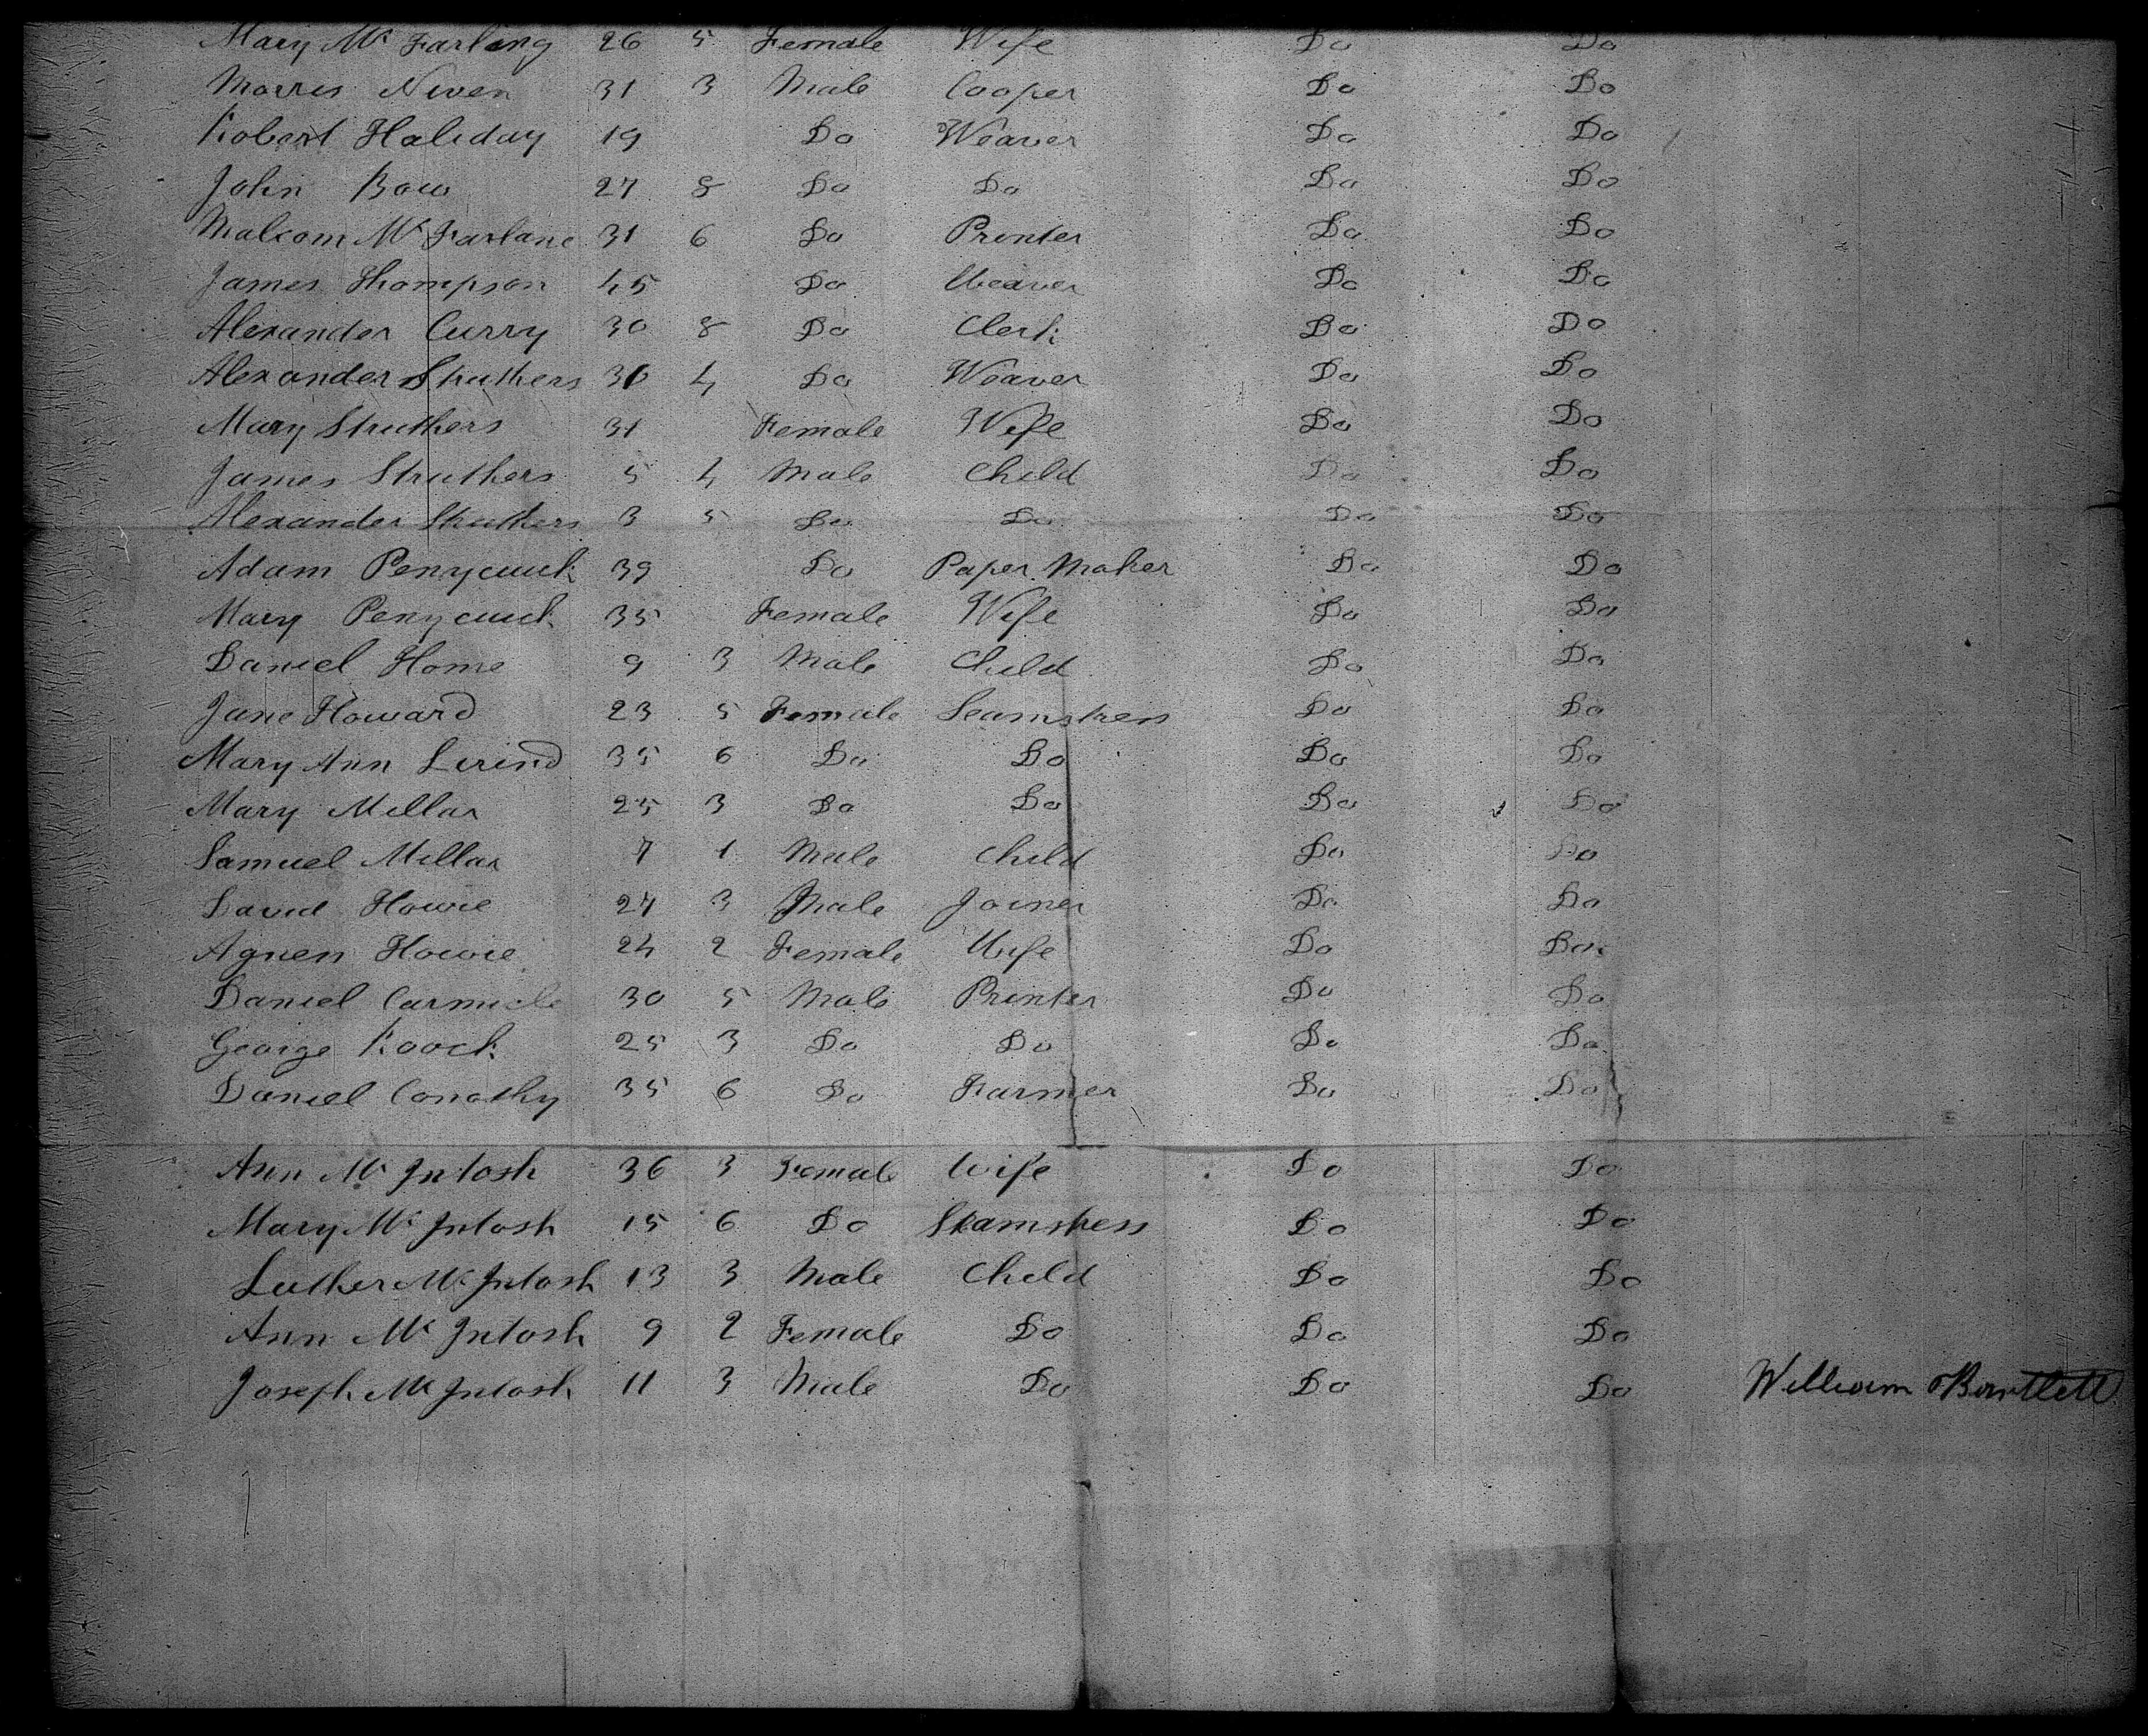 Mary Mc Farling 26 5 Female Wife Do Do
Morris Niven 31 3 Male Cooper Do Do
Robert Haliday 19 Do Weaver Do Do
John Bow 27 8 Do Do Do Do
Malcom Mc Farlane 31 6 Do Printer Do Do
James Thompson 45 Do Weaver Do Do
Alexander Curry 30 8 Do Clerk Do Do
Alexander Struthers 36 4 Do Weaver Do Do
Mary Struthers 31 Female Wife Do Do
James Struthers 5 4 Male Child Do Do
Alexander Struthers 3 5 Do Do Do Do
Adam Penycuick 39 Do Paper Maker Do Do
Mary Penycuick 35 Female Wife Do Do
Daniel Home 9 3 Male Child Do Do
Jane Howard 23 5 Female Seamstress Do Do
Mary Ann 35 6 Do Do Do Do
Mary Millar 25 3 Do Do Do Do
Samuel Millar 7 1 Male Child Do Do
David Howie 27 3 Male Joiner Do Do
Agness Howie 24 2 Female Wife Do Do
Daniel Carmicle 30 5 Male Printer Do Do
George Roock 25 3 Do Do Do Do
Daniel Conothy 35 6 Do Farmer Do Do
Ann Mc Intosh 36 3 Female Wife Do Do
Mary Mc Intosh 15 6 Do Seamstress Do Do
Luther Mc Intosh 13 3 Male Child Do Do
Ann Mc Intosh 9 2 Female Do Do Do
Joseph Mc Intosh 11 3 Male Do Do Do William Bartlett